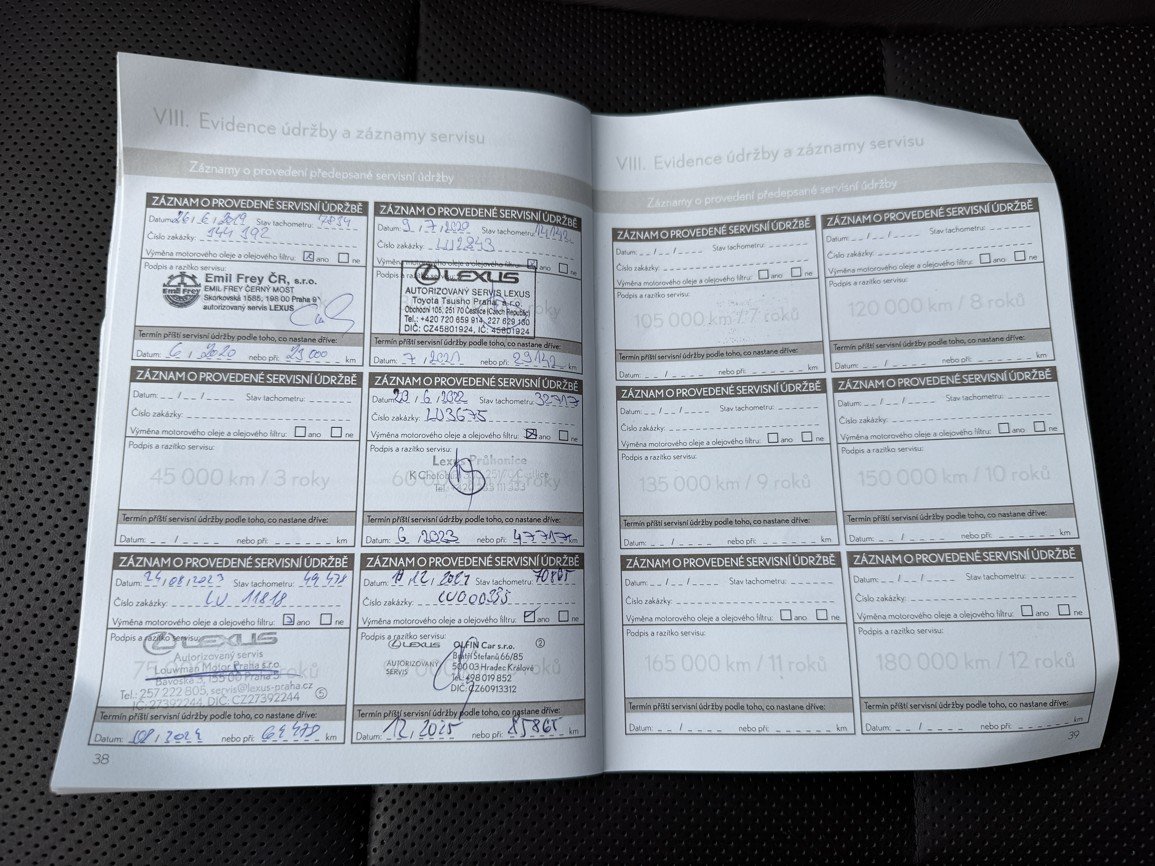 VIII. Evidence údržby a záznamy servisu
Záznamy o provedení předepsané servisní údržby
ZÁZNAM O PROVEDENÉ SERVISNÍ ÚDRŽBĚ
Datum: 26/6/2019 Stav tachometru:
Číslo zakázky: 144 192
Výměna motorového oleje a olejového filtru: ano ne
Podpis a razítko servisu:
Emil Frey ČR, s.r.o.
EMIL FREY ČERNÝ MOST
Skorkovská 1585, 198 00 Praha 9
autorizovaný servis LEXUS
Emil Frey
Termín příští servisní údržby podle toho, co nastane dříve:
Datum: 6/2020 nebo při: 23 000 km
ZÁZNAM O PROVEDENÉ SERVISNÍ ÚDRŽBĚ
Datum: /7/2020 Stav tachometru:
Číslo zakázky: LU2843
Výměna motorového oleje a olejového filtru: ano ne
LEXUS
AUTORIZOVANÝ SERVIS LEXUS
Toyota Tsusho Praha, s.r.o.
Obchodní 105, 251 70 Čestlice (Czech Republic)
Tel.: +420 720 659 914, 227 629 180
DIČ: CZ45801924, IČ: 45801924
Termín příští servisní údržby podle toho, co nastane dříve:
Datum: 7/2021 nebo při: 29142 km
ZÁZNAM O PROVEDENÉ SERVISNÍ ÚDRŽBĚ
Datum: / / Stav tachometru:
Číslo zakázky:
Výměna motorového oleje a olejového filtru: ano ne
Podpis a razítko servisu:
45 000 km / 3 roky
Termín příští servisní údržby podle toho, co nastane dříve:
Datum: / nebo při: km
ZÁZNAM O PROVEDENÉ SERVISNÍ ÚDRŽBĚ
Datum: /6/2022 Stav tachometru: 32717
Číslo zakázky: LU3675
Výměna motorového oleje a olejového filtru: ano ne
Podpis a razítko servisu:
Lexus Průhonice
Termín příští servisní údržby podle toho, co nastane dříve:
Datum: 6/2023 nebo při: 47717 km
ZÁZNAM O PROVEDENÉ SERVISNÍ ÚDRŽBĚ
Datum: 24/08/2023 Stav tachometru: 49 478
Číslo zakázky: LU 11818
Výměna motorového oleje a olejového filtru: ano ne
Podpis a razítko servisu:
LEXUS
Autorizovaný servis
Louwman Motor Praha s.r.o.
Tel.: 257 222 805, servis@lexus-praha.cz
IČ: 27392244, DIČ: CZ27392244
Termín příští servisní údržby podle toho, co nastane dříve:
Datum: 08/2024 nebo při: 64 478 km
ZÁZNAM O PROVEDENÉ SERVISNÍ ÚDRŽBĚ
Datum: /12/ Stav tachometru: 70865
Číslo zakázky:
Výměna motorového oleje a olejového filtru: ano ne
Podpis a razítko servisu:
LEXUS
AUTORIZOVANÝ
SERVIS
OLFIN Car s.r.o.
Bratří Štefanů 66/85
500 03 Hradec Králové
Tel.: 498 019 852
DIČ: CZ60913312
Termín příští servisní údržby podle toho, co nastane dříve:
Datum: 12/2025 nebo při: 85865 km
38
VIII. Evidence údržby a záznamy servisu
Záznamy o provedení předepsané servisní údržby
ZÁZNAM O PROVEDENÉ SERVISNÍ ÚDRŽBĚ
Datum: / / Stav tachometru:
Číslo zakázky:
Výměna motorového oleje a olejového filtru: ano ne
Podpis a razítko servisu:
105 000 km / 7 roků
Termín příští servisní údržby podle toho, co nastane dříve:
Datum: / nebo při: km
ZÁZNAM O PROVEDENÉ SERVISNÍ ÚDRŽBĚ
Datum: / / Stav tachometru:
Číslo zakázky:
Výměna motorového oleje a olejového filtru: ano ne
Podpis a razítko servisu:
120 000 km / 8 roků
Termín příští servisní údržby podle toho, co nastane dříve:
Datum: / nebo při: km
ZÁZNAM O PROVEDENÉ SERVISNÍ ÚDRŽBĚ
Datum: / / Stav tachometru:
Číslo zakázky:
Výměna motorového oleje a olejového filtru: ano ne
Podpis a razítko servisu:
135 000 km / 9 roků
Termín příští servisní údržby podle toho, co nastane dříve:
Datum: / nebo při: km
ZÁZNAM O PROVEDENÉ SERVISNÍ ÚDRŽBĚ
Datum: / / Stav tachometru:
Číslo zakázky:
Výměna motorového oleje a olejového filtru: ano ne
Podpis a razítko servisu:
150 000 km / 10 roků
Termín příští servisní údržby podle toho, co nastane dříve:
Datum: / nebo při: km
ZÁZNAM O PROVEDENÉ SERVISNÍ ÚDRŽBĚ
Datum: / / Stav tachometru:
Číslo zakázky:
Výměna motorového oleje a olejového filtru: ano ne
Podpis a razítko servisu:
165 000 km / 11 roků
Termín příští servisní údržby podle toho, co nastane dříve:
Datum: / nebo při: km
ZÁZNAM O PROVEDENÉ SERVISNÍ ÚDRŽBĚ
Datum: / / Stav tachometru:
Číslo zakázky:
Výměna motorového oleje a olejového filtru: ano ne
Podpis a razítko servisu:
180 000 km / 12 roků
Termín příští servisní údržby podle toho, co nastane dříve:
Datum: / nebo při: km
39